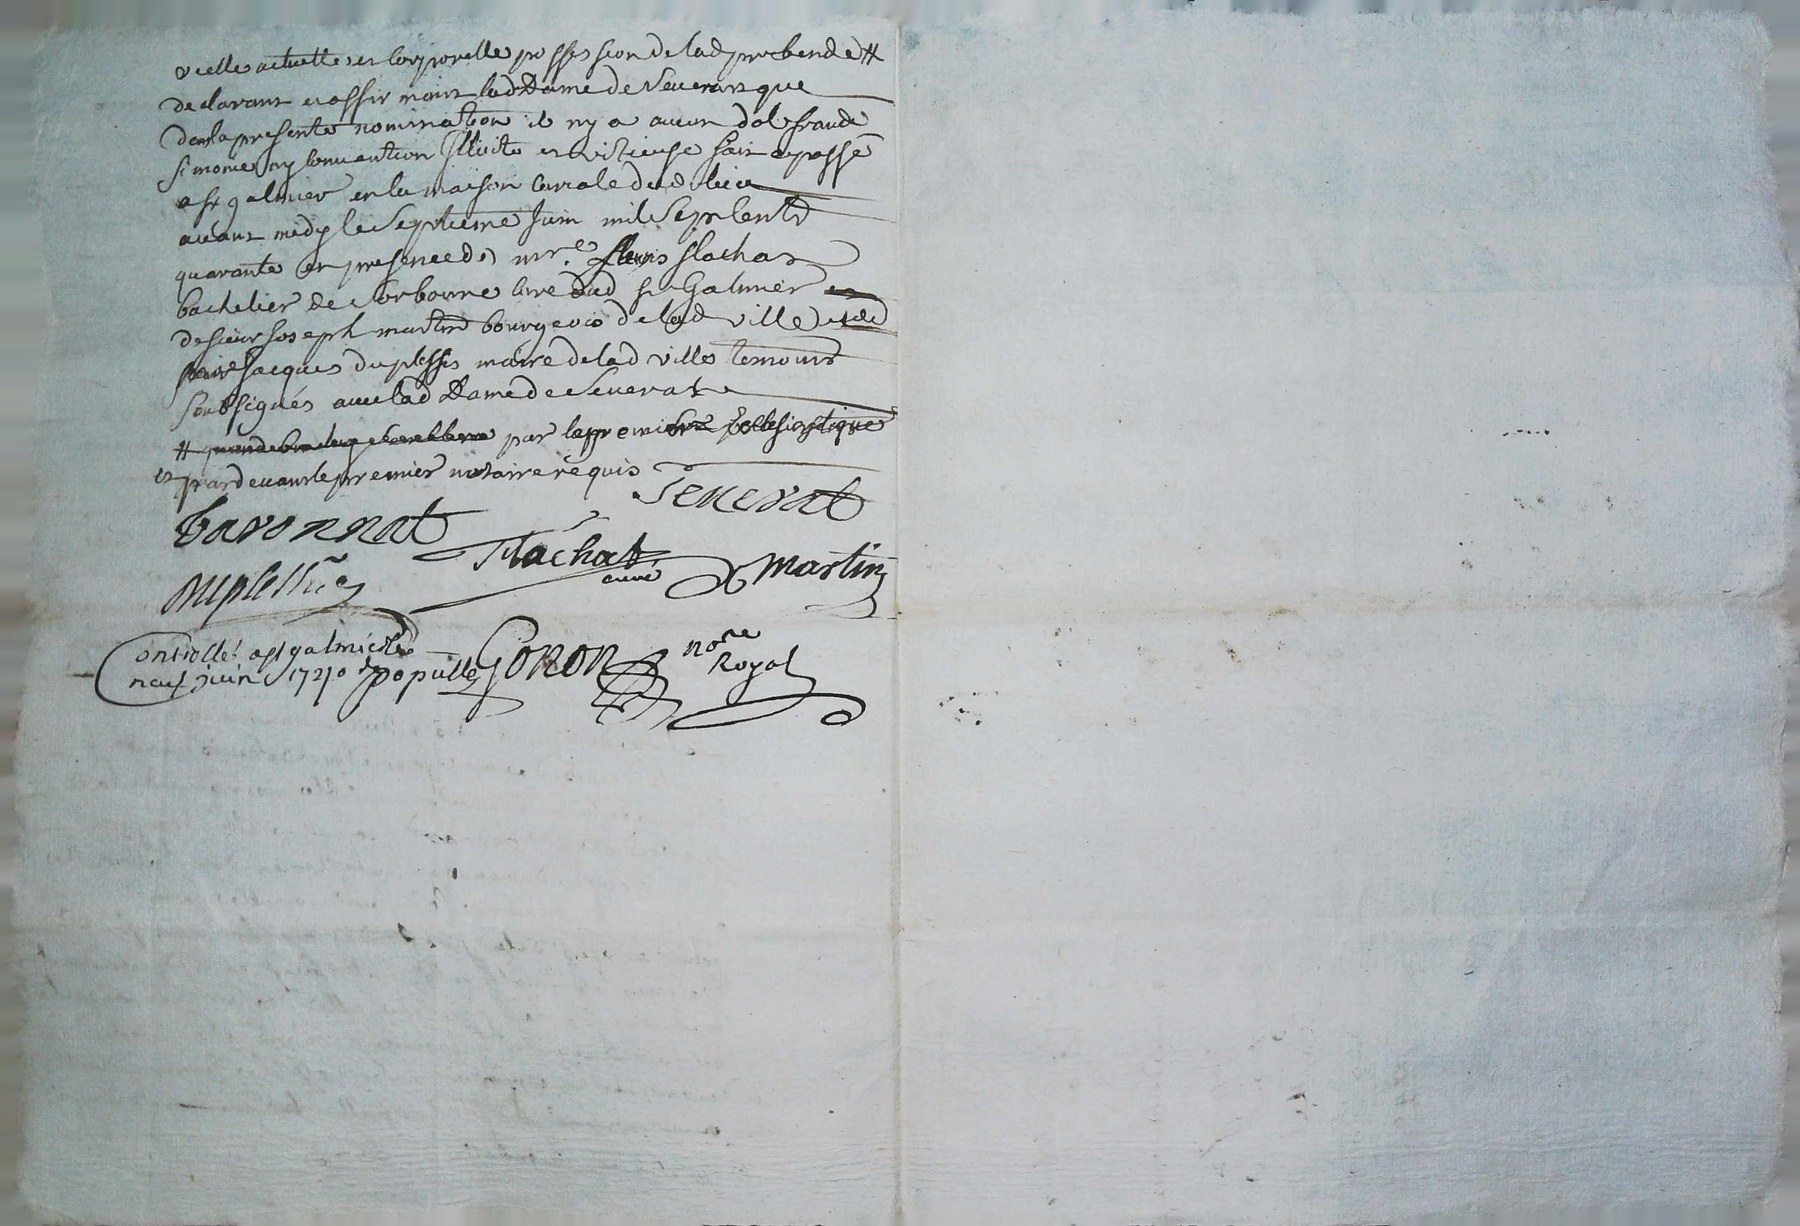 reelle actuelle et corporelle possession de lad prebende #
declarant et affirmant lad Dame de Severat que
dans la presente nomination il ny a aucun dol fraude
simonie ny convention Illicite et vitieuse fait et passé
a st galmier en la maison curiale dud lieu
avant midy le septieme Juin mil sept cents
quarante en presence de mre. flachat
bachelier de sorbonne curé dud st Galmier
de sieur Joseph martin bourgeois de lad ville et de
Jacques duplessis maire de lad ville temoins
soubsignés avec lad Dame de Severat
# par le premier Ecclesiastique
et pardevant le premier notaire requis
Severat
baronnat
flachat
curé
Martin
duplessis
Controllé a st galmier le
neuf juin 1740
populle
Gonon nore
Royal